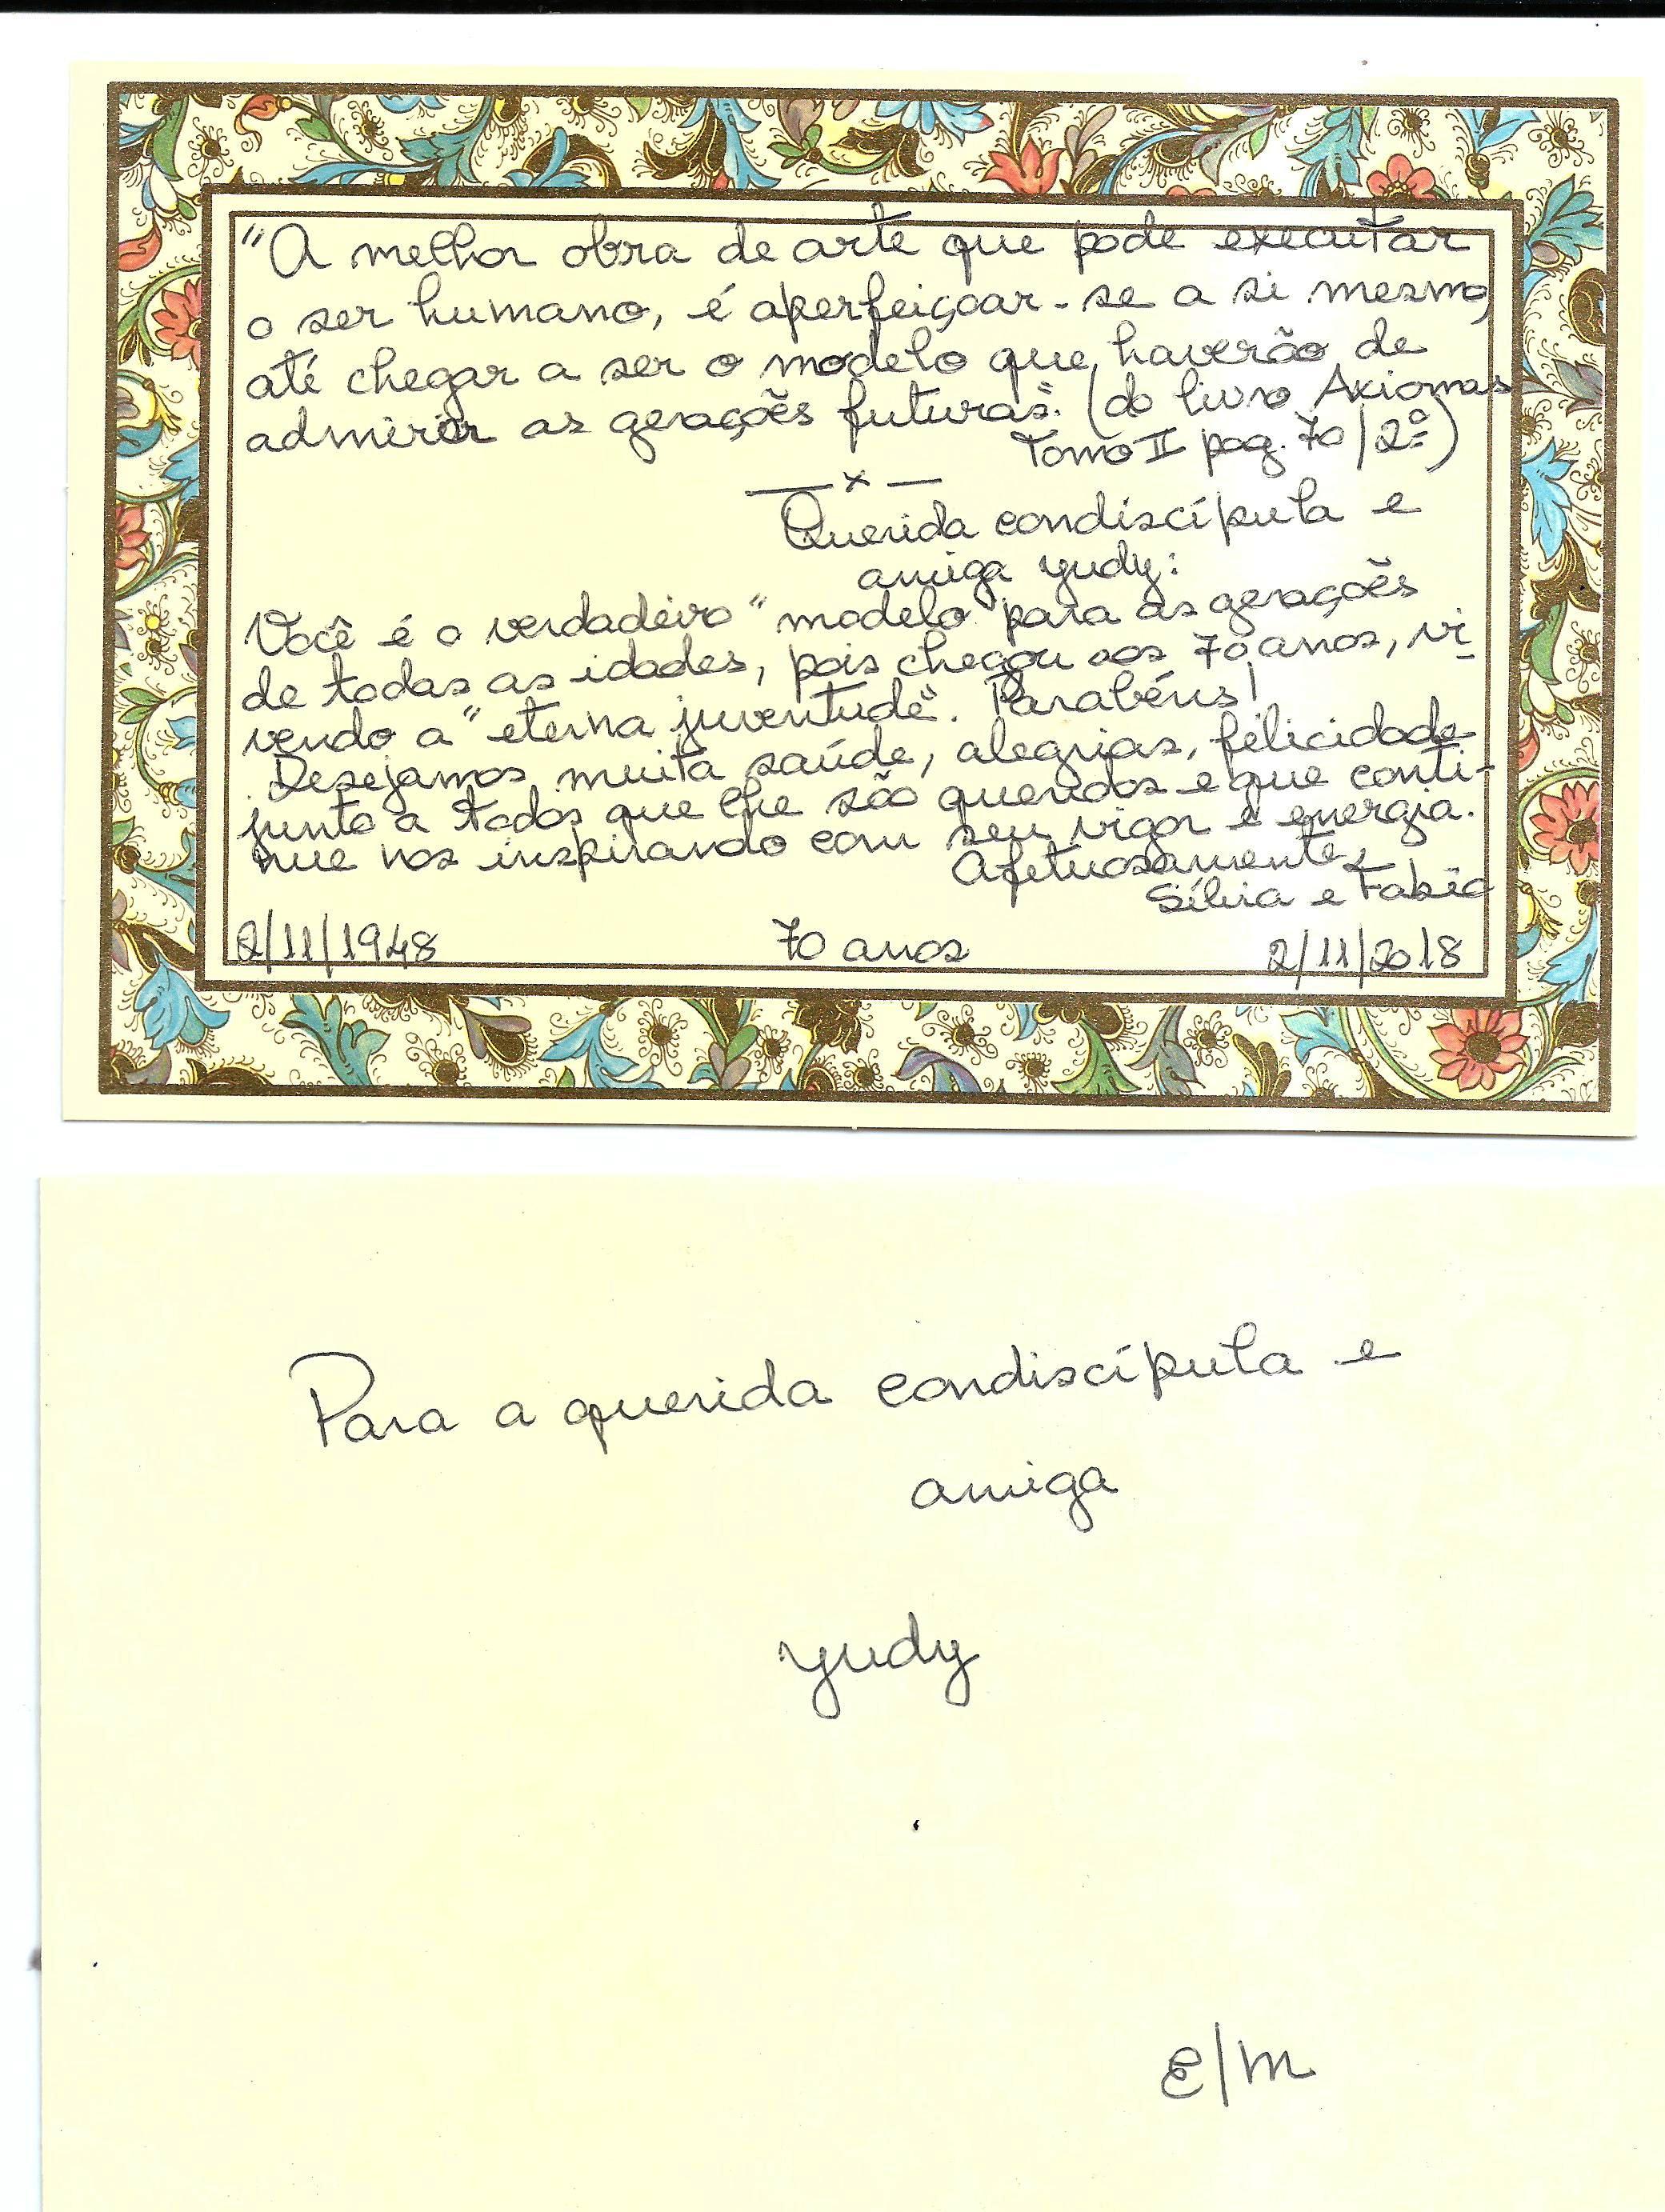 "A melhor obra de arte que pode executar
o ser humano, é aperfeiçoar-se a si mesmo,
até chegar a ser o modelo que haverão de
admirar as gerações futuras". (do livro Axiomas
Tomo II pag. 70/2º)
— x —
Querida condiscípula e
amiga Yudy:
Você é o verdadeiro "modelo" para as gerações
de todas as idades, pois chegou aos 70 anos, vi-
vendo a "eterna juventude". Parabéns!
Desejamos muita saúde, alegrias, felicidade
junto a todos que lhe são queridos e que conti-
nue nos inspirando com seu vigor e energia.
Afetuosamente,
Sílvia e Fabio
2/11/1948 70 anos 2/11/2018
Para a querida condiscípula e
amiga
Yudy
E/M